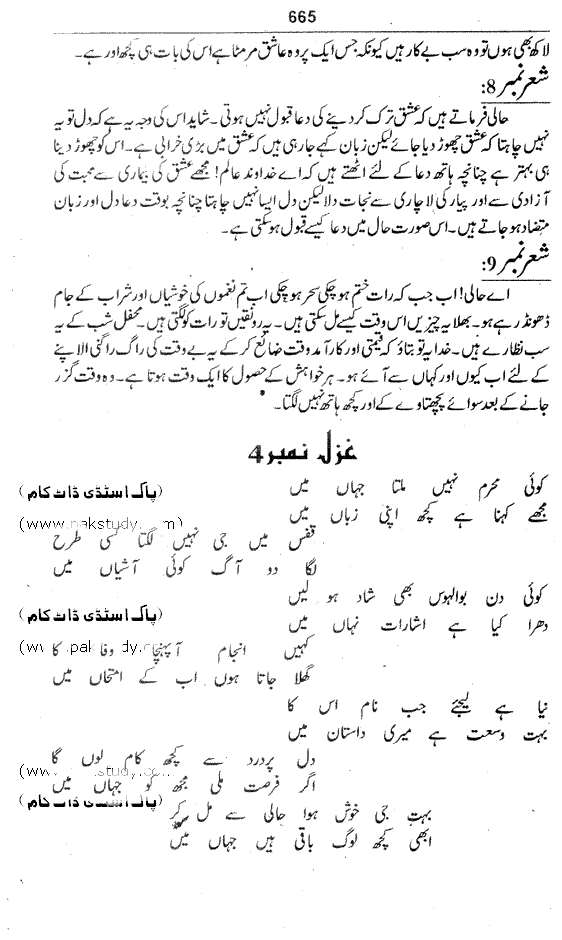 665
لاکھ بھی ہوں تو وہ سب بے کار ہیں کیونکہ جس ایک پر وہ عاشق مر مٹا ہے اس کی بات ہی کچھ اور ہے۔
شعر نمبر 8:
حالی فرماتے ہیں کہ عشق ترک کر دینے کی دعا قبول نہیں ہوتی۔ شاید اس کی وجہ یہ ہے کہ دل تو یہ
نہیں چاہتا کہ عشق چھوڑ دیا جائے لیکن زبان کہے جا رہی ہیں کہ عشق میں بڑی خرابی ہے۔ اس کو چھوڑ دینا
ہی بہتر ہے چنانچہ ہاتھ دعا کے لئے اٹھتے ہیں کہ اے خداوند عالم! مجھے عشق کی بیماری سے محبت کی
آزادی سے اور پیار کی لاچاری سے نجات دلا لیکن دل ایسا نہیں چاہتا چنانچہ بوقت دعا دل اور زبان
متضاد ہو جاتے ہیں۔ اس صورت حال میں دعا کیسے قبول ہو سکتی ہے۔
شعر نمبر 9:
اے حالی! اب جب کہ رات ختم ہو چکی سحر ہو چکی اب تم نغموں کی خوشیاں اور شراب کے جام
ڈھونڈ رہے ہو۔ بھلا یہ چیزیں اس وقت کیسے مل سکتی ہیں۔ یہ رونقیں تو رات کو لگتی ہیں۔ محفل شب کے یہ
سب نظارے ہیں۔ خدا یہ تو بتاؤ کہ قیمتی اور کارآمد وقت ضائع کر کے یہ بے وقت کی راگ راگنی الاپنے
کے لئے اب کیوں اور کہاں سے آئے ہو۔ ہر خواہش کے حصول کا ایک وقت ہوتا ہے۔ وہ وقت گزر
جانے کے بعد سوائے پچھتاوے کے اور کچھ ہاتھ نہیں لگتا۔
غزل نمبر 4
کوئی محرم نہیں ملتا جہاں میں
(پاک اسٹڈی ڈاٹ کام)
مجھے کہنا ہے کچھ اپنی زباں میں
(www.pakstudy. m)
قفس میں جی نہیں لگتا کسی طرح
لگا دو آگ کوئی آشیاں میں
کوئی دن بوالہوس بھی شاد ہو لیں
(پاک اسٹڈی ڈاٹ کام)
دھرا کیا ہے اشارات نہاں میں
کہیں انجام آ پہنچا وفا کا
(ww .pak dy.c
گھلا جاتا ہوں اب کے امتحاں میں
نیا ہے لیجئے جب نام اس کا
بہت وسعت ہے میری داستان میں
دل پردرد سے کچھ کام لوں گا
(ww study.co
اگر فرصت ملی مجھ کو جہاں میں
پاک اسٹڈی ڈاٹ کام)
بہت جی خوش ہوا حالی سے مل کر
ابھی کچھ لوگ باقی ہیں جہاں میں